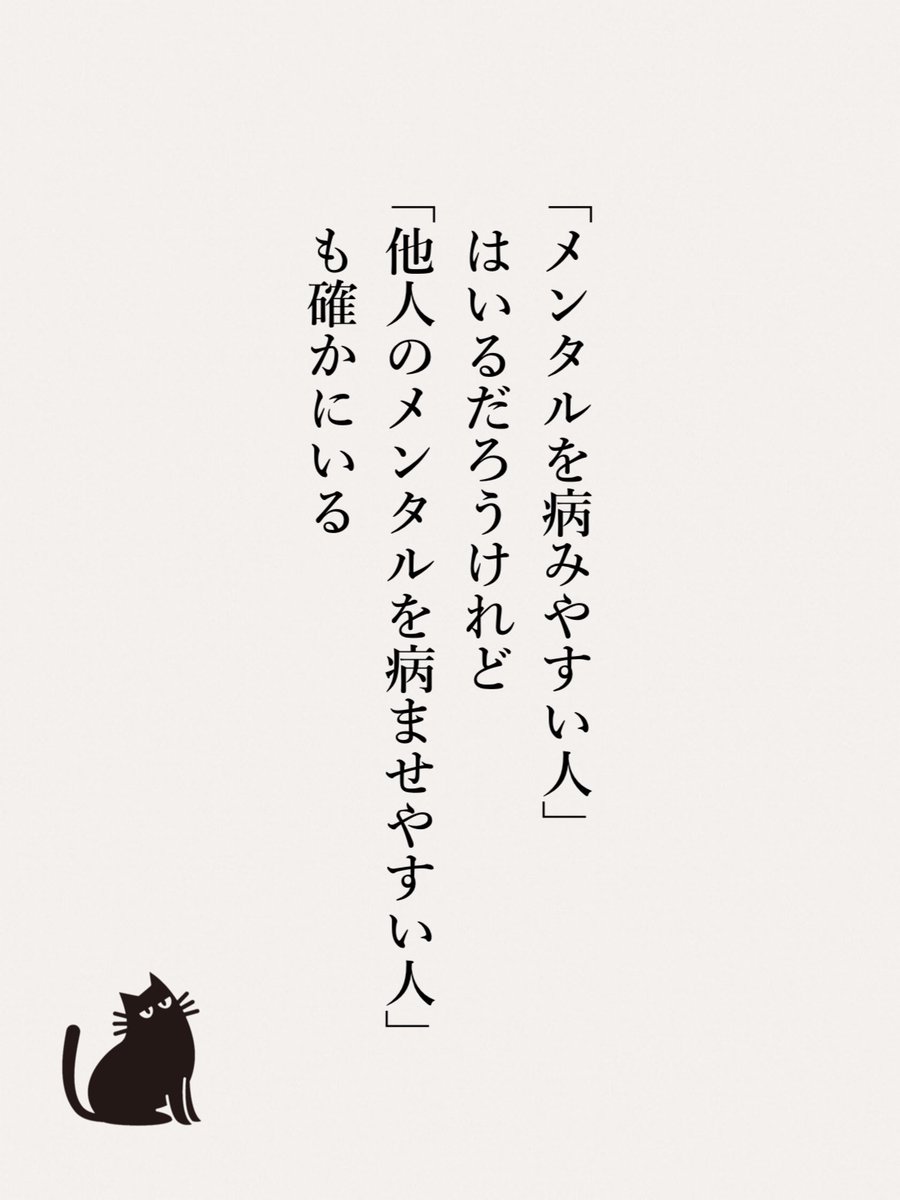 「メンタルを病みやすい人」
はいるだろうけれど
「他人のメンタルを病ませやすい人」
も確かにいる